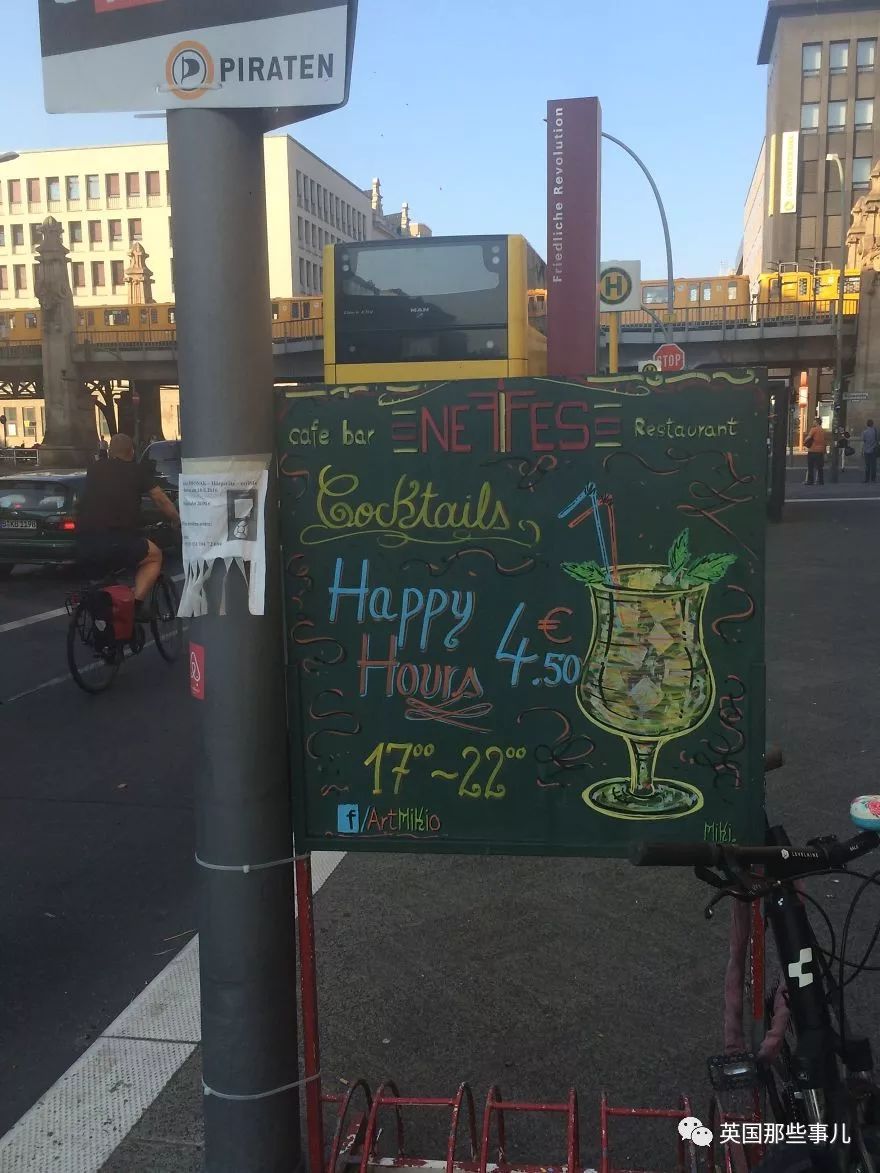 PIRATEN
Friedliche Revolution
H
MAN
STOP
COMMERZBANK
cafe bar ENEFFES Restaurant
Cocktails
Happy
Hours
4.50 €
17⁰⁰~22⁰⁰
f/ArtMikio
Miki.
LEVELNINE
英国那些事儿